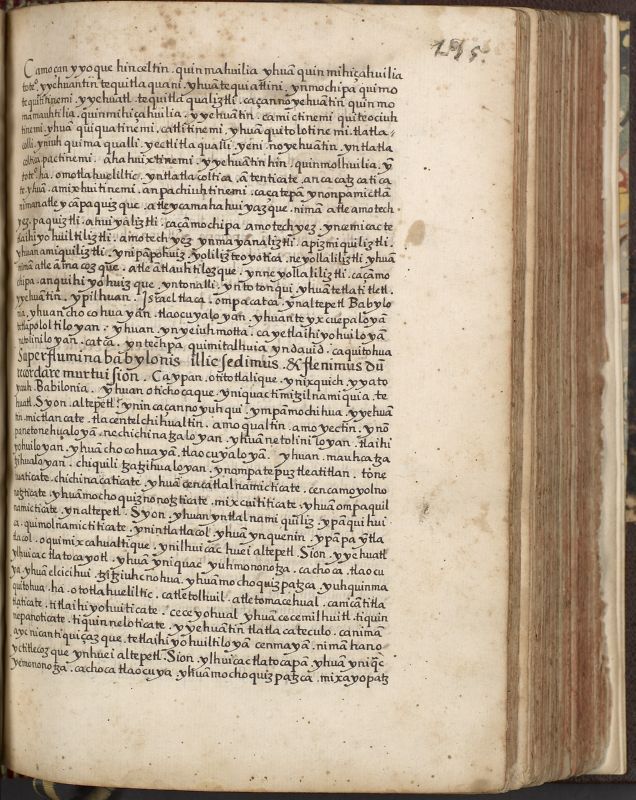 195.
Camo çan yyoque hinceltin. quinmahuilia yhuā quinmihiçahuilia
toteº. yyehuantin tequitlaquani. yhuā tequiatlini. ynmochipa quimo
tequitinemi. yyehuatl. tequitla qualiztli. caçannoyehuātin quinmo
mamauhtilia. quinmihiçahuilia. yyehuātin. camictinemi quiteociuh
tinemi. yhuā quiquatinemi. catlitinemi. yhuā quitolotinemi. tlatla-
colli. yniuh quima qualli. yectli tlaqualli. yeni noyehuātin. yntlatla
coltica pactinemi. aha huixtinemi. yyehuātin hin. quinmolhuilia. ȳ
toteº. ha. omotlahueliltic. yntlatlacoltica. ātenticate. ancacatzcatica
te. yhuā. amixhuitinemi. anpachiuhtinemi. caçatepā ynonpa mictlā
niman atle ycāpa quizque. atleycamahahuiyazque. nimā atle amotech
yez. paquiztli. ahuiyaliztli. caçāmochipa amotechyez. yncemicacte
tlaihiyohuiltiliztli. amotechyez ynmayanaliztli. apizmiquiliztli.
yhuan amiquiliztli. ynipāpohuiz. yoliliz teoyotica. neyollaliliztli yhuā
nimā atle āmacozque. atle atlauhtilozque. ynneyollaliliztli. caçāmo
chipa. anquihiyohuizque yntonalli. yntotonqui. yhuā tetlatitletl.
yyehuātin. ypilhuan. Israel tlaca. ompa catca. ynaltepetl Babylo
nia. yhuan chocohuayan. tlaocuyaloyan. yhuan teyxcuepaloyā
tlapololtiloyan. yhuan. ynyeiuhmotta. cayetlaihiyohuiloyan
netoliniloyan. catca. yntechpa quimitalhuia yndauid. caquitohua
Super flumina babylonis illic sedimus. & flenimus dū
recordaremur tui sion. Caypan. otitotlalique. ynixquich yyato
yauh. Babilonia. yhuan otichocaque. yniquac timitzilnamiquia. te
huatl. Syon. altepetl. ynin caçannoyuhqui. ympa mochihua. yyehuā
tin. mictlancate. tlacentelchihualtin. amo qualtin. amo yectin. ynō
panetonehualoyā. nechichinatzaloyan. yhuā netoliniloyan. tlaihi
yohuiloyan. yhuā chocohuaya. tlaocuyaloya. yhuan. mauhcatza
tzihualoyan. chiquili tzatzihualoyan. ynompa tepuztleatitlan. tone
huaticate. chichinacaticate. yhuā cencatlalnamicticate. cencamoyolno
notzticate. yhuā mochoquiznonotzticate. mixcuititicate. yhuā ompa quil
namicticate. ynaltepetl. Syon. yhuan yntlalnamiquiliz. ypāqui hui
ca. quimolnamictiticate. ynintlatlacol. yhuā ynquenin. ypāpa ytla
tlacol. oquimixcahualtique. ynilhuicac huei altepetl. Sion. yyehuatl
ylhuicac tlatocayotl. yhuā yniquac. yuhmononotza. cachoca. tlaocu
ya. yhuā elcicihui. tzitziuhcnohua. yhuā mochoquizpatzca. yuhquinma
quitohua. ha. ototlahueliltic. catle tolhuil. atle tomacehual. canicā titla
tlaticate. titlaihiyohuiticate. cece yohual yhuā cecemilhuitl. tiquin
nepanoticate. tiquinneloticate. yyehuātin tlatlacateculo. canimā
ayc nican tiquiçazque. tetlaihiyohuiltiloyā cenmaya. nimā hano
yctitlecozque ynhuei altepetl. Sion. ylhuicac tlatocapā yhuā yniq̄c
yemononotza. cachoca tlaocuya. yhuā mochoquizpatzca. mixayopatz